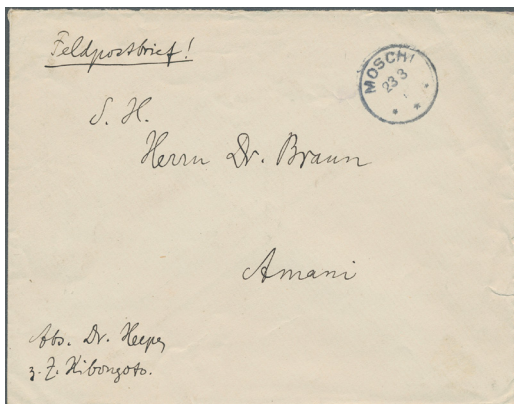 Feldpostbrief!
MOSCHI
23 3
S. H.
Herrn Dr. Braun
Amani
Abs. Dr.
z. Z. Kibongoto.